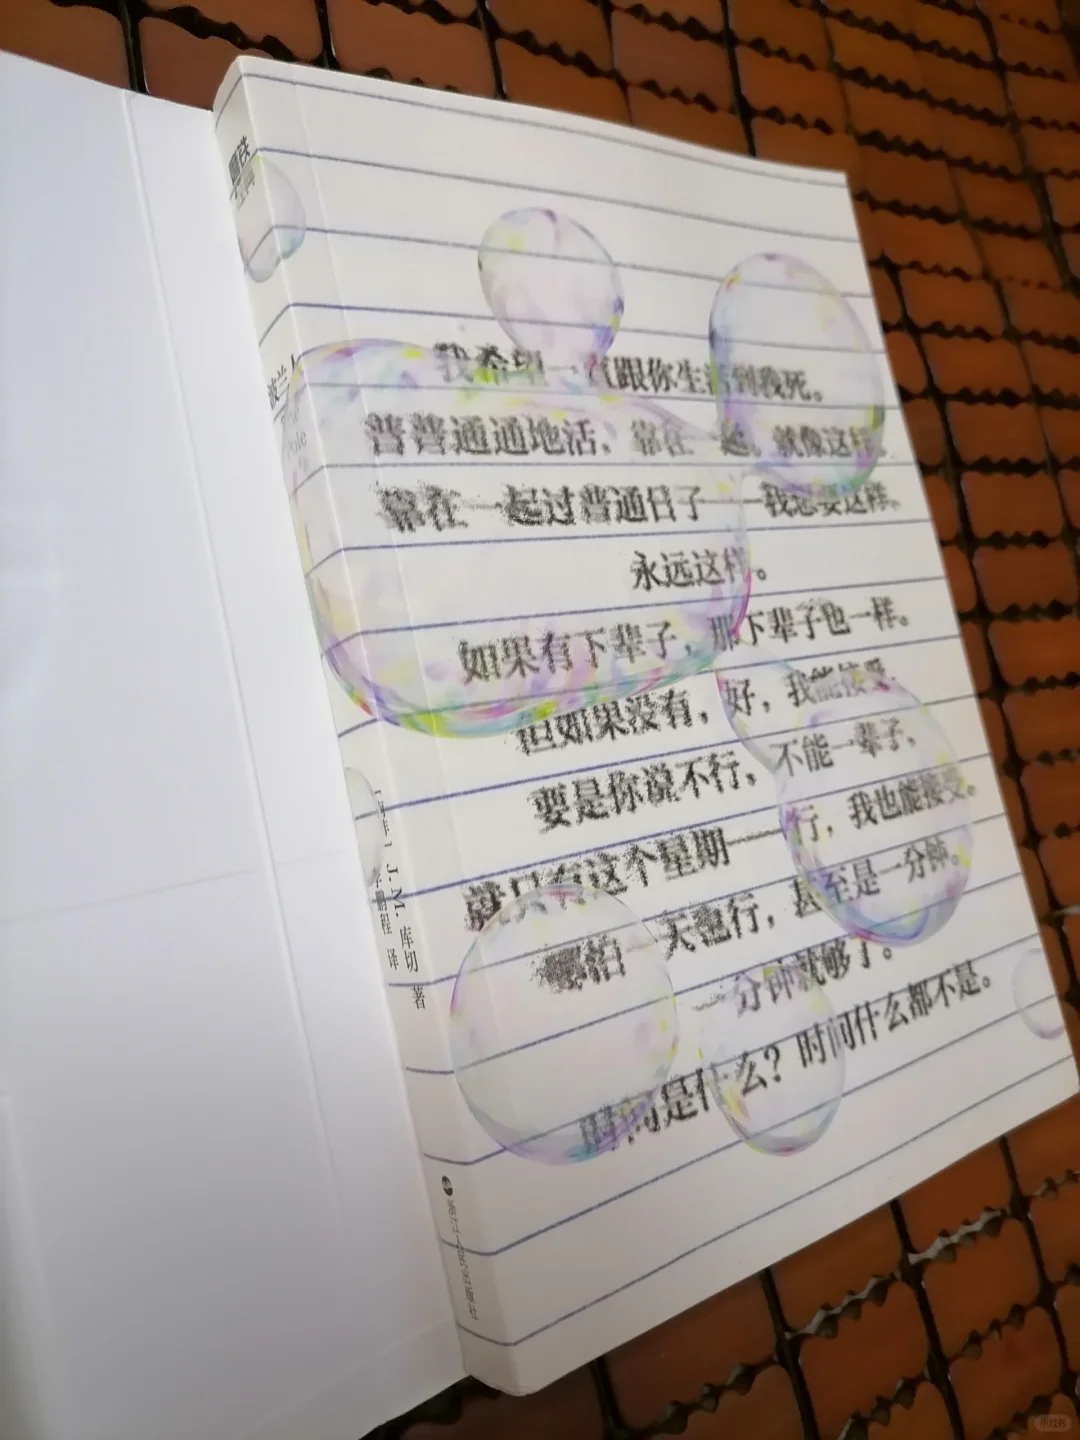 我希望一直跟你生活到我死。
普普通通地活，靠在一起，就像这样，
靠在一起过普通日子——我想要这样。
永远这样。
如果有下辈子，那下辈子也一样。
但如果没有，好，我能接受。
要是你说不行，不能一辈子，
就只有这个星期——行，我也能接受。
哪怕一天也行，甚至是一分钟。
一分钟就够了。
时间是什么？时间什么都不是。
波兰人
Pole
J. M. 库切 著
李鹏程 译
小红书